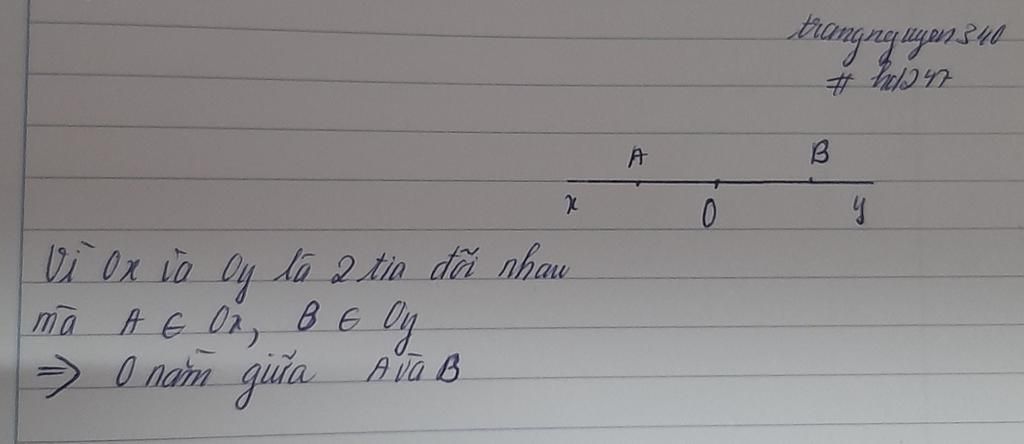 trangnguyen340
# hd247
A B
x O y
Vì Ox và Oy là 2 tia đối nhau
mà A ∈ Ox, B ∈ Oy
=> O nằm giữa A và B